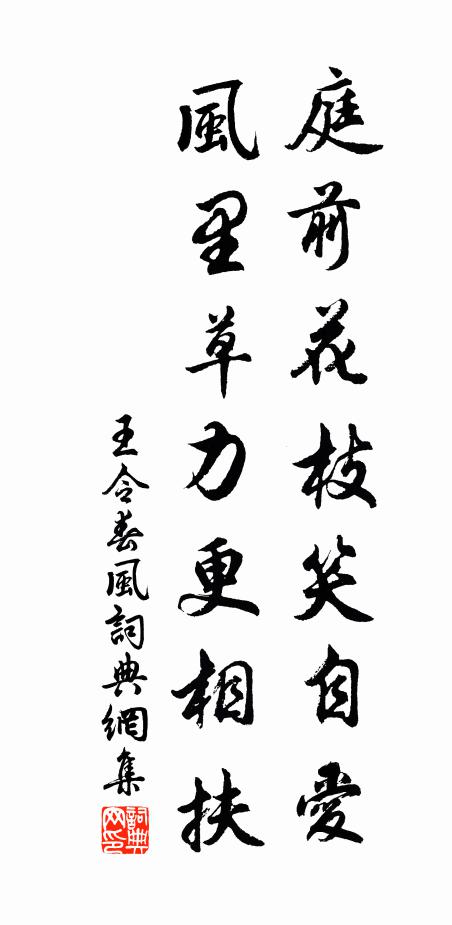 庭前花枝笑自愛
風里草力更相扶
王令春風詞典網集
詞典网印